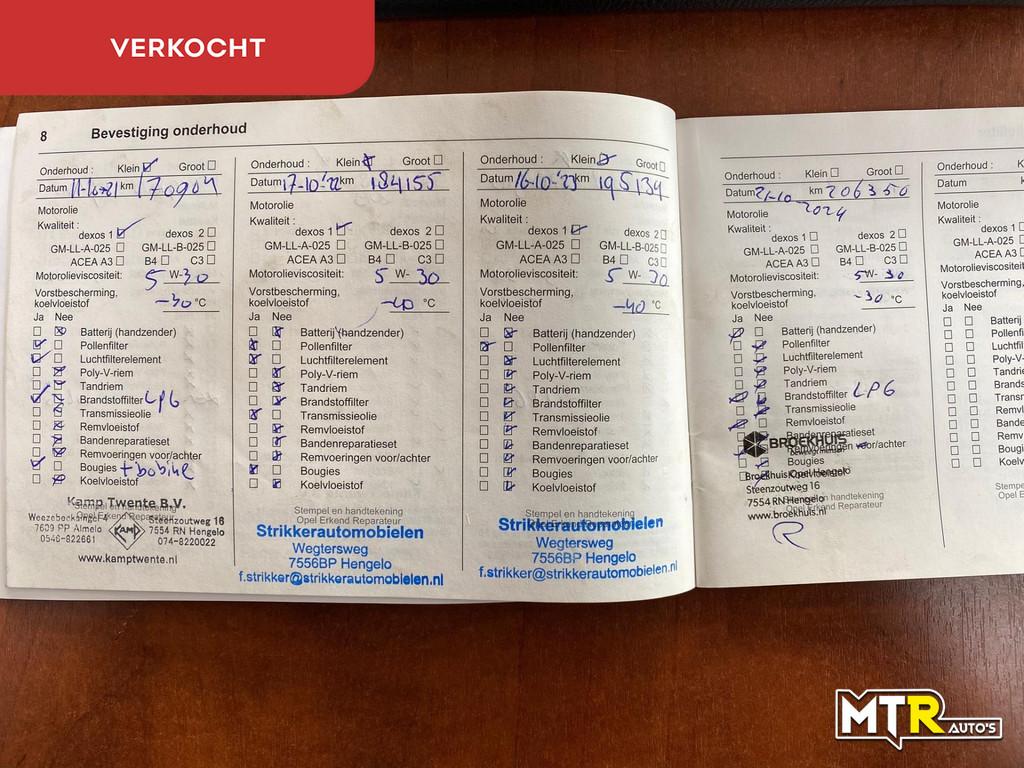 VERKOCHT
8 Bevestiging onderhoud
Onderhoud : Klein Groot
Datum km 170904
Motorolie
Kwaliteit :
dexos 1 dexos 2
GM-LL-A-025 GM-LL-B-025
ACEA A3 B4 C3
Motorolieviscositeit: 5 W-30
Vorstbescherming,
koelvloeistof -30 °C
Ja Nee
Batterij (handzender)
Pollenfilter
Luchtfilterelement
Poly-V-riem
Tandriem
Brandstoffilter LPG
Transmissieolie
Remvloeistof
Bandenreparatieset
Remvoeringen voor/achter
Bougies + bobine
Koelvloeistof
Stempel en handtekening
Opel Erkend Reparateur
Kamp Twente B.V.
KAMP
7609 PP Almelo
0546-822661
Steenzoutweg 16
7554 RN Hengelo
074-8220022
www.kamptwente.nl
Onderhoud : Klein Groot
Datum 17-10-'22 km 184155
Motorolie
Kwaliteit :
dexos 1 dexos 2
GM-LL-A-025 GM-LL-B-025
ACEA A3 B4 C3
Motorolieviscositeit: 5 W- 30
Vorstbescherming,
koelvloeistof -40 °C
Ja Nee
Batterij (handzender)
Pollenfilter
Luchtfilterelement
Poly-V-riem
Tandriem
Brandstoffilter
Transmissieolie
Remvloeistof
Bandenreparatieset
Remvoeringen voor/achter
Bougies
Koelvloeistof
Stempel en handtekening
Opel Erkend Reparateur
Strikkerautomobielen
Wegtersweg
7556BP Hengelo
f.strikker@strikkerautomobielen.nl
Onderhoud : Klein Groot
Datum 16-10-'23 km 195134
Motorolie
Kwaliteit :
dexos 1 dexos 2
GM-LL-A-025 GM-LL-B-025
ACEA A3 B4 C3
Motorolieviscositeit: 5 W- 30
Vorstbescherming,
koelvloeistof -40 °C
Ja Nee
Batterij (handzender)
Pollenfilter
Luchtfilterelement
Poly-V-riem
Tandriem
Brandstoffilter
Transmissieolie
Remvloeistof
Bandenreparatieset
Remvoeringen voor/achter
Bougies
Koelvloeistof
Stempel en handtekening
Opel Erkend Reparateur
Strikkerautomobielen
Wegtersweg
7556BP Hengelo
f.strikker@strikkerautomobielen.nl
Onderhoud : Klein Groot
Datum 21-10-2024 km 206350
Motorolie
Kwaliteit :
dexos 1 dexos 2
GM-LL-A-025 GM-LL-B-025
ACEA A3 B4 C3
Motorolieviscositeit: 5W- 30
Vorstbescherming,
koelvloeistof -30 °C
Ja Nee
Batterij (handzender)
Pollenfilter
Luchtfilterelement
Poly-V-riem
Tandriem
Brandstoffilter LPG
Transmissieolie
Remvloeistof
Bandenreparatieset
Remvoeringen voor/achter
Bougies
Koelvloeistof
BROEKHUIS
Broekhuis Opel Hengelo
Steenzoutweg 16
7554 RN Hengelo
www.broekhuis.nl
Onderhoud :
Datum
Motorolie
Kwaliteit :
GM-LL-A-025
ACEA A3
Motorolieviscositeit:
Vorstbescherming,
koelvloeistof
Ja Nee
MTR AUTO'S